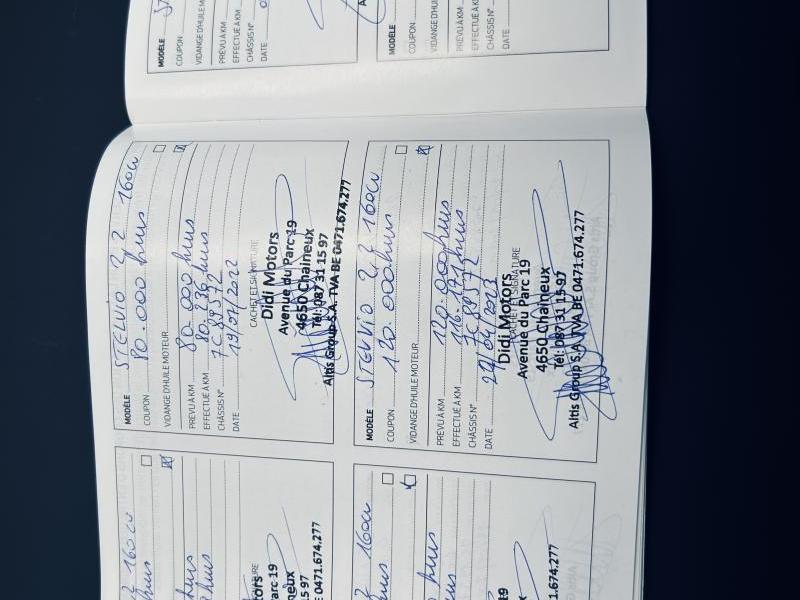 MODÈLE STELVIO 2,2 160cv
COUPON 80.000 kms
VIDANGE D'HUILE MOTEUR
PRÉVU À KM 80 000 kms
EFFECTUÉ À KM 80.236 kms
CHÂSSIS N° 7C89572
DATE 19/07/2022
CACHET ET SIGNATURE
Didi Motors
Avenue du Parc 19
4650 Chaineux
Tél: 087 31 15 97
Altis Group S.A. TVA BE 0471.674.277
MODÈLE STELVIO 2,2 160cv
COUPON 120.000 kms
VIDANGE D'HUILE MOTEUR
PRÉVU À KM 120.000 kms
EFFECTUÉ À KM 116.171 kms
CHÂSSIS N° 7C89572
DATE /04/2023
CACHET ET SIGNATURE
Didi Motors
Avenue du Parc 19
4650 Chaineux
Tél: 087 31 15 97
Altis Group S.A. TVA BE 0471.674.277
MODÈLE
COUPON
VIDANGE D'HUILE
PRÉVU À KM
EFFECTUÉ À KM
CHÂSSIS N°
DATE
MODÈLE
COUPON
VIDANGE D'HUILE
PRÉVU À KM
EFFECTUÉ À KM
CHÂSSIS N°
DATE
160cv
kms
kms
kms
Parc 19
0471.674.277
160cv
kms
kms
kms
19
1.674.277